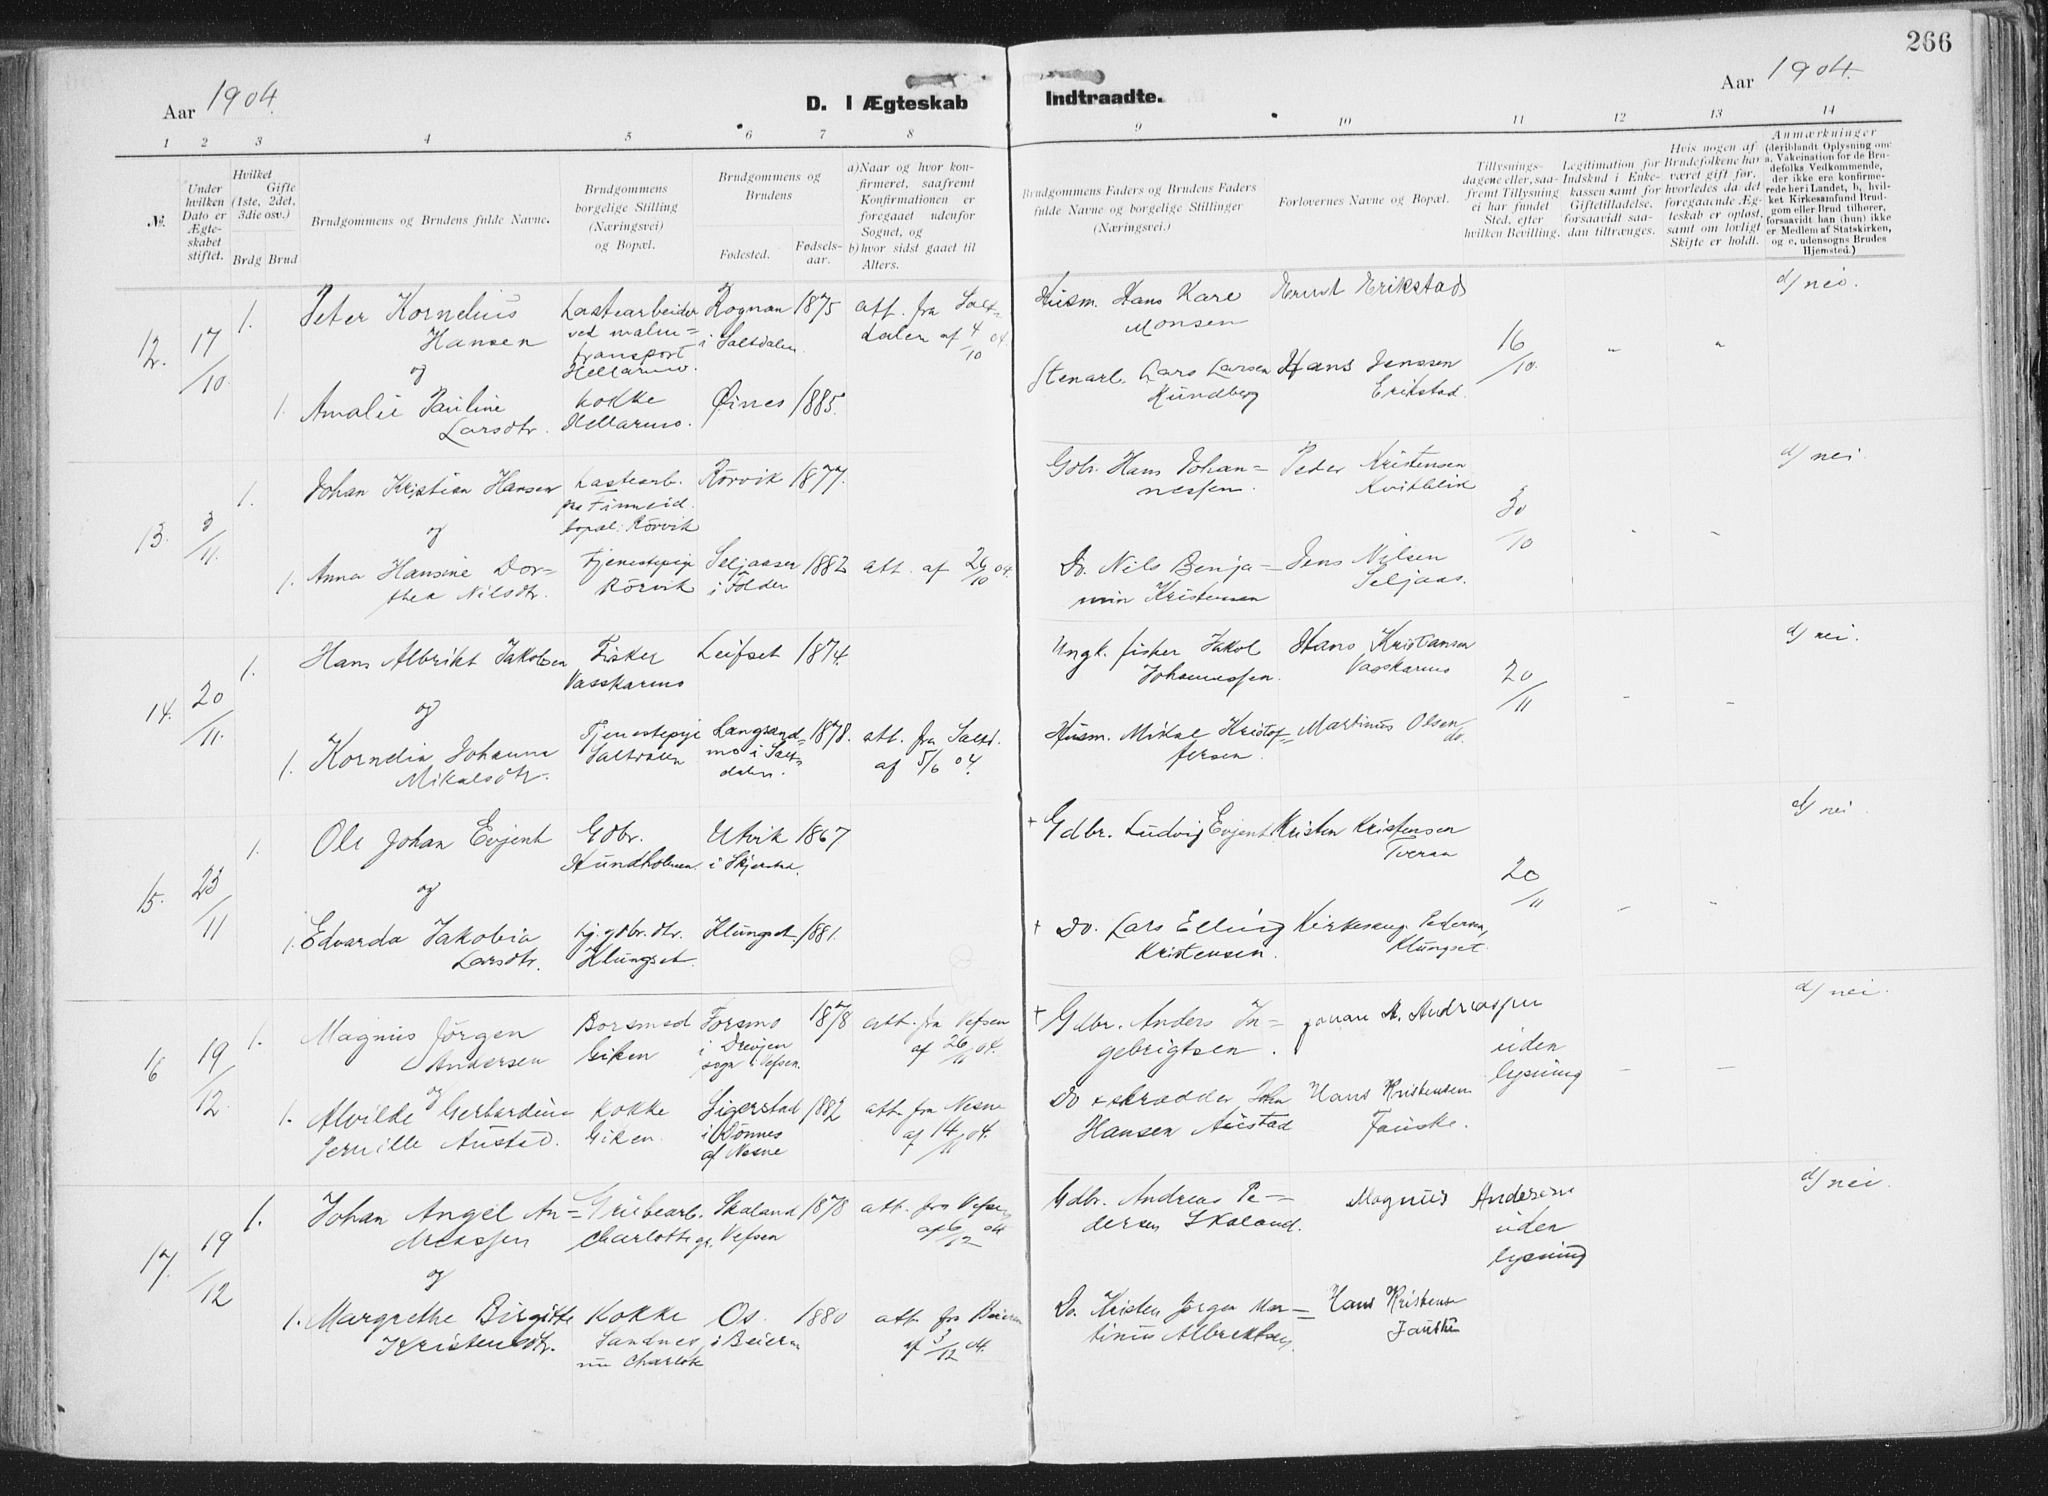 266
Aar 1904.
D. I Ægteskab Indtraadte.
Aar 1904.
1 2 3 4 5 6 7 8 9 10 11 12 13 14
№.
Under hvilken Dato er Ægteskabet stiftet.
Hvilket Gifte (1ste, 2det, 3die osv.)
Brdg Brud
Brudgommens og Brudens fulde Navne.
Brudgommens borgelige Stilling (Næringsvei) og Bopæl.
Brudgommens og Brudens
Fødested.
Fødselsaar.
a) Naar og hvor konfirmeret, saafremt Konfirmationen er foregaaet udenfor Sognet, og
b) hvor sidst gaaet til Alters.
Brudgommens Faders og Brudens Faders fulde Navne og borgelige Stillinger (Næringsvei.)
Forlovernes Navne og Bopæl.
Tillysningsdagene eller, saafremt Tillysning ei har fundet Sted, efter hvilken Bevilling.
Legitimation for Indskud i Enkekassen samt for Giftetilladelse, forsaavidt saadan tiltrænges.
Hvis nogen af Brudefolkene har været gift før, hvorledes da det foregaaende Ægteskab er opløst, samt om lovligt Skifte er holdt.
Anmærkninger (deriblandt Oplysning om: a. Vakcination for de Brudefolks Vedkommende, der ikke ere konfirmerede her i Landet, b. hvilket Kirkesamfund Brudgom eller Brud tilhører, forsaavidt han (hun) ikke er Medlem af Statskirken, og c. udensogns Brudes Hjemsted.)
12. 17/10. 1. Peter Kornelius Hansen
Lastearbeider ved malmtransport Hellarmo.
Rognan i Saltdalen 1875
att. fra Saltdalen af 4/10 04.
Husm. Hans Kare Monsen
Ernst Erikstad
16/10.
d/ nei.
og
1. Amalie Pauline Larsdtr.
kokke Hellarmo.
Øines 1885.
Stenarb. Lars Larsen Hundberg
Hans Jenssen Erikstad.
13. 3/11. 1. Johan Kristian Hansen
Lastearb. fra Finneid. bopæl: Rörvik
Rörvik 1877.
Gbr. Hans Johannessen.
Peder Kristensen Kvitblik
30/10
d/ nei
og
1. Anna Hansine Dorthea Nilsdtr.
Tjenestepige Rörvik
Seljaasen i Folden 1882
att. af 26/10 04.
Do. Nils Benjamin Kristensen
Jens Nilsen Seljaas.
14. 20/11. 1. Hans Albrikt Jakobsen
Fisker Vasskarmo
Leifset 1874.
Ungk. fisker Jakob Johannessen.
Hans Kristiansen Vasskarmo
20/11
d/ nei.
og
1. Kornelia Johanna Mikalsdtr.
Tjenestepige Saltdalen
Langsandmo i Saltdalen. 1878.
att. fra Saltd. af 5/6 04.
Husm. Mikal Kristoffersen
Martinus Olsen do.
15. 23/11 1. Ole Johan Evjent
Gdbr. Hundholmen
Utvik i Skjerstad. 1867
+ Gdbr. Ludvig Evjent
Kristen Kristensen Tveraa
20/11
d/ nei
og
1. Edvarda Jakobia Larsdtr.
hj. gdbr. dtr. Klungset.
Klungset. 1881.
+ Do. Lars Elling Kristensen.
Kirkesang. Pedersen, Klungset.
16 19/12. 1. Magnus Jörgen Andersen
Borsmed Giken
Forsmo i Drevjen sogn i Vefsen. 1878
att. fra Vefsen af 26/11 04.
+ Gdbr. Anders Ingebrigtsen.
Johan A. Andreassen
uden lysning
d/ nei.
og
1. Alvilde Gerhardine Pernille Austad.
kokke Giken.
Sigerstad i Dönnes af Nesne 1882
att. fra Nesne af 14/11 04.
Do + skrædder John Hansen Austad
Hans Kristensen Fauske.
17. 19/12 1. Johan Angel Andreassen
Grubearb. Charlotte gr.
Skaland Vefsen 1878
att. fra Vefsen af 6/12 04
Gdbr. Andreas Pedersen Skaland.
Magnus Andersen
uden lysning
d/ nei.
og
1. Margrethe Birgitte Kristensdtr.
Kokke Sandnes, nu Charlotte
Os. i Beiern 1880
att. fra Beieren af 3/12 04.
Do. Kristen Jörgen Martinus Albrektsen.
Hans Kristensen Fauske